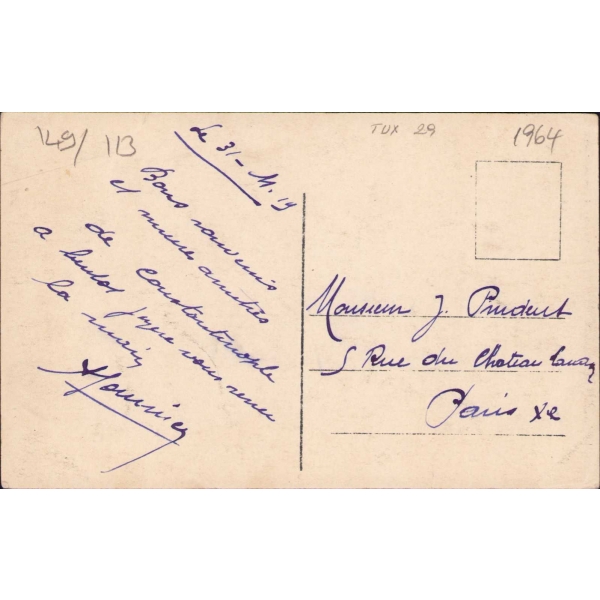 149/ 113
TUX 29
1964
Le 31 - M. 19
Bons souvenirs
et amitiés
de Constantinople
a bientot vous
la main
Monsieur J. Prudent
5 Rue du Chateau Landon
Paris Xe